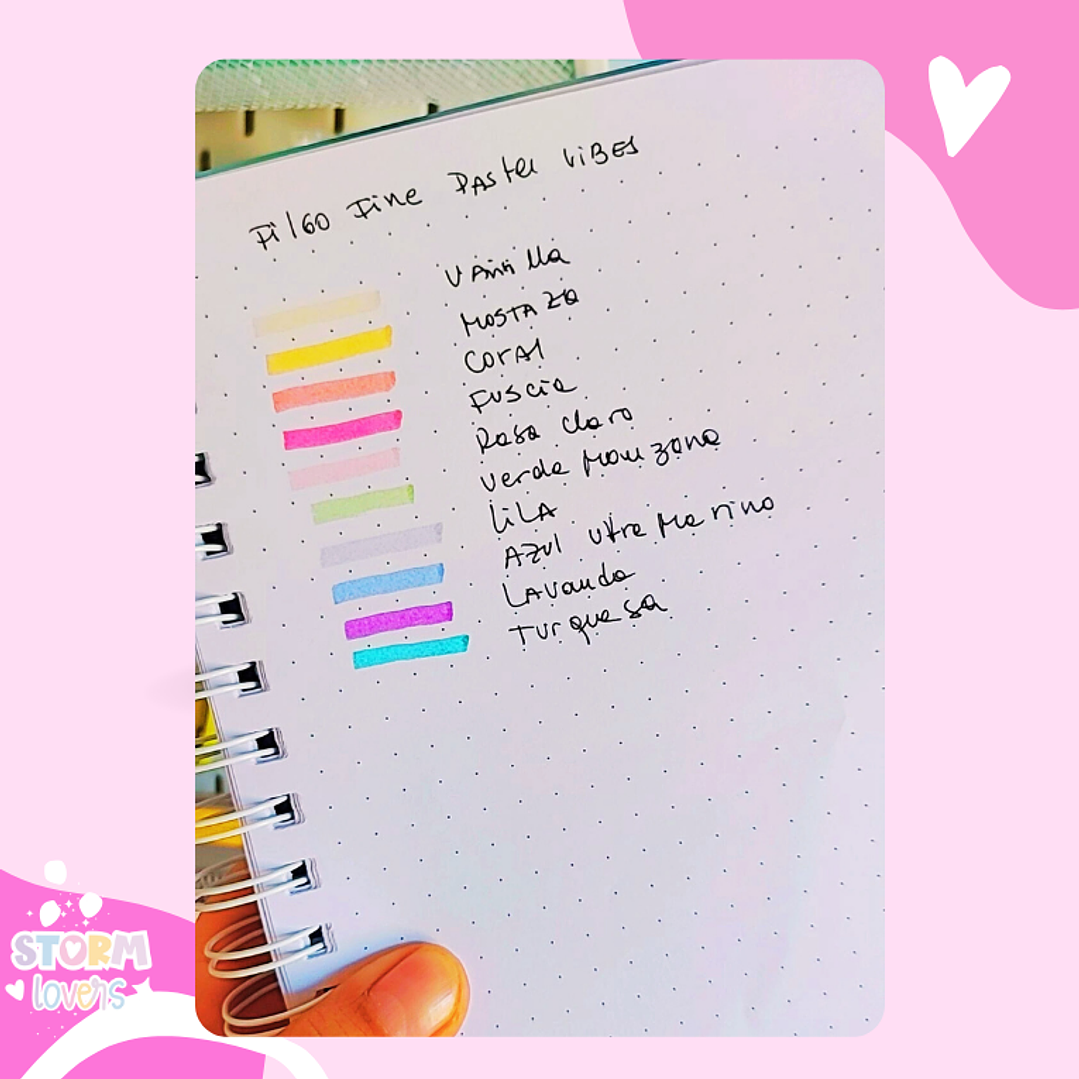 Filgo Fine Pastel Vibes
Vainilla
Mostaza
Coral
Fuscia
Rosa claro
Verde Manzana
Lila
Azul utra Marino
Lavanda
Turquesa
STORM
lovers